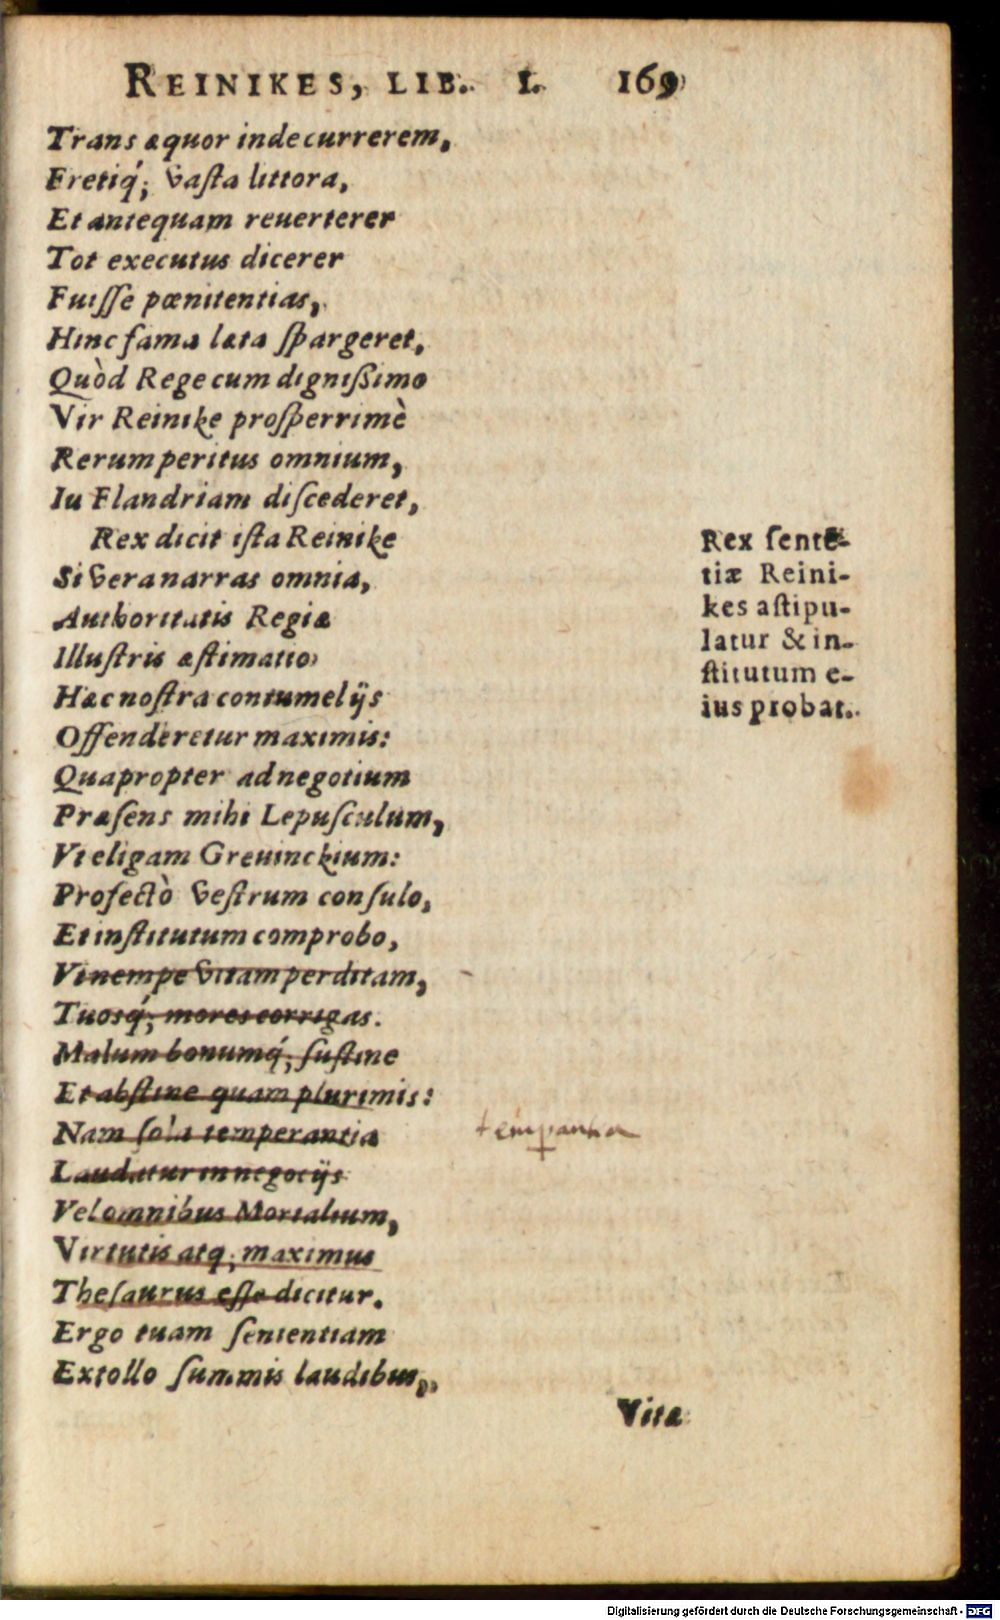 REINIKES, LIB. I. 169
Trans æquor inde currerem,
Fretiq́; vasta littora,
Et antequam reuerterer
Tot executus dicerer
Fuisse pœnitentias,
Hinc fama læta spargeret,
Quòd Rege cum dignißimo
Vir Reinike prosperrimè
Rerum peritus omnium,
Iu Flandriam discederet,
Rex dicit ista Reinike
Si vera narras omnia,
Authoritatis Regiæ
Illustris æstimatio
Hæc nostra contumelijs
Offenderetur maximis:
Quapropter ad negotium
Præsens mihi Lepusculum,
Vt eligam Greuinckium:
Profectò vestrum consulo,
Et institutum comprobo,
Vt nempe vitam perditam,
Tuosq́; mores corrigas.
Malum bonumq́; sustine
Et abstine quam plurimis:
Nam sola temperantia
Laudatur in negocijs
Vel omnibus Mortalium,
Virtutis atq; maximus
Thesaurus esse dicitur.
Ergo tuam sententiam
Extollo summis laudibus,
Vitæ
Rex sentẽ-
tiæ Reini-
kes astipu-
latur & in-
stitutum e-
ius probat.
Digitalisierung gefördert durch die Deutsche Forschungsgemeinschaft - DFG